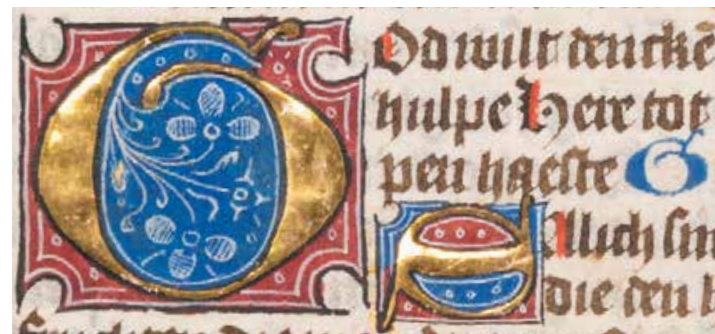 GOd wilt denckē
hulpe Here tot
pen haeste G
SAllich sin
die den